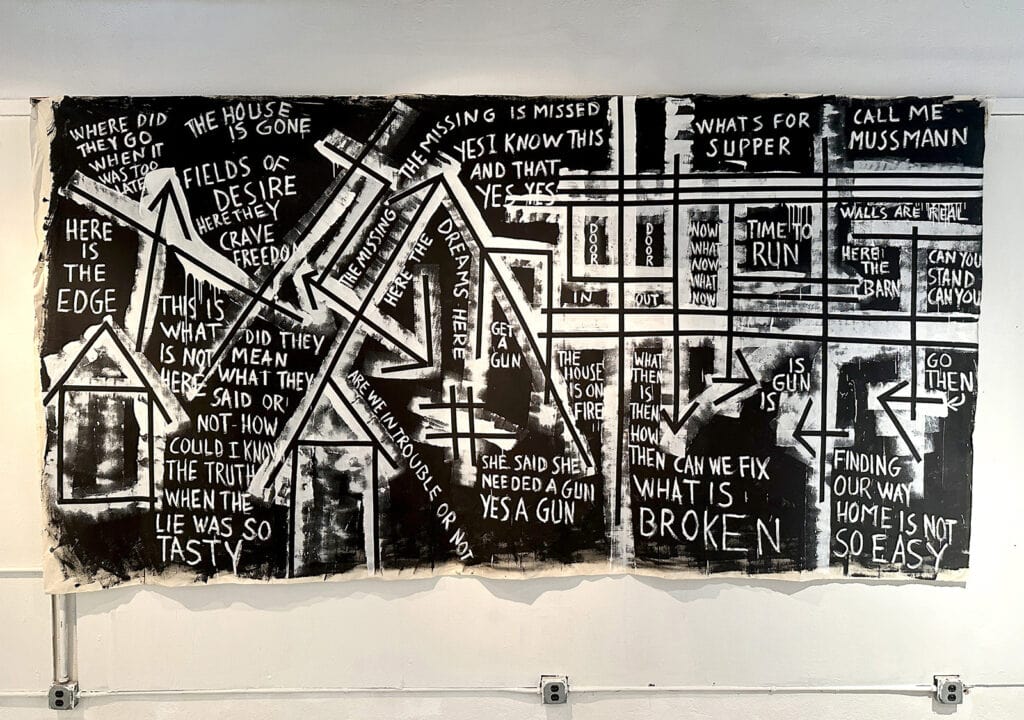 WHERE DID
THEY GO
WHEN IT
WAS TOO
LATE
THE HOUSE
IS GONE
FIELDS OF
DESIRE
HERE THEY
CRAVE
FREEDOM
HERE
IS
THE
EDGE
THIS IS
WHAT
IS NOT
HERE
DID THEY
MEAN
WHAT THEY
SAID OR
NOT-HOW
COULD I KNOW
THE TRUTH
WHEN THE
LIE WAS SO
TASTY
THE MISSING IS MISSED
YES I KNOW THIS
AND THAT
YES YES
THE MISSING
HERE THE
DREAMS HERE
GET
A
GUN
ARE WE IN TROUBLE OR NOT
SHE SAID SHE
NEEDED A GUN
YES A GUN
THE
HOUSE
IS ON
FIRE
DOOR
DOOR
IN
OUT
NOW
WHAT
NOW
WHAT
NOW
WHATS FOR
SUPPER
TIME TO
RUN
CALL ME
MUSSMANN
WALLS ARE REAL
HERE
THE
BARN
CAN YOU
STAND
CAN YOU
WHAT
THEN
IS
THEN
HOW
THEN CAN WE FIX
WHAT IS
BROKEN
IS
GUN
IS
GO
THEN
FINDING
OUR WAY
HOME IS NOT
SO EASY